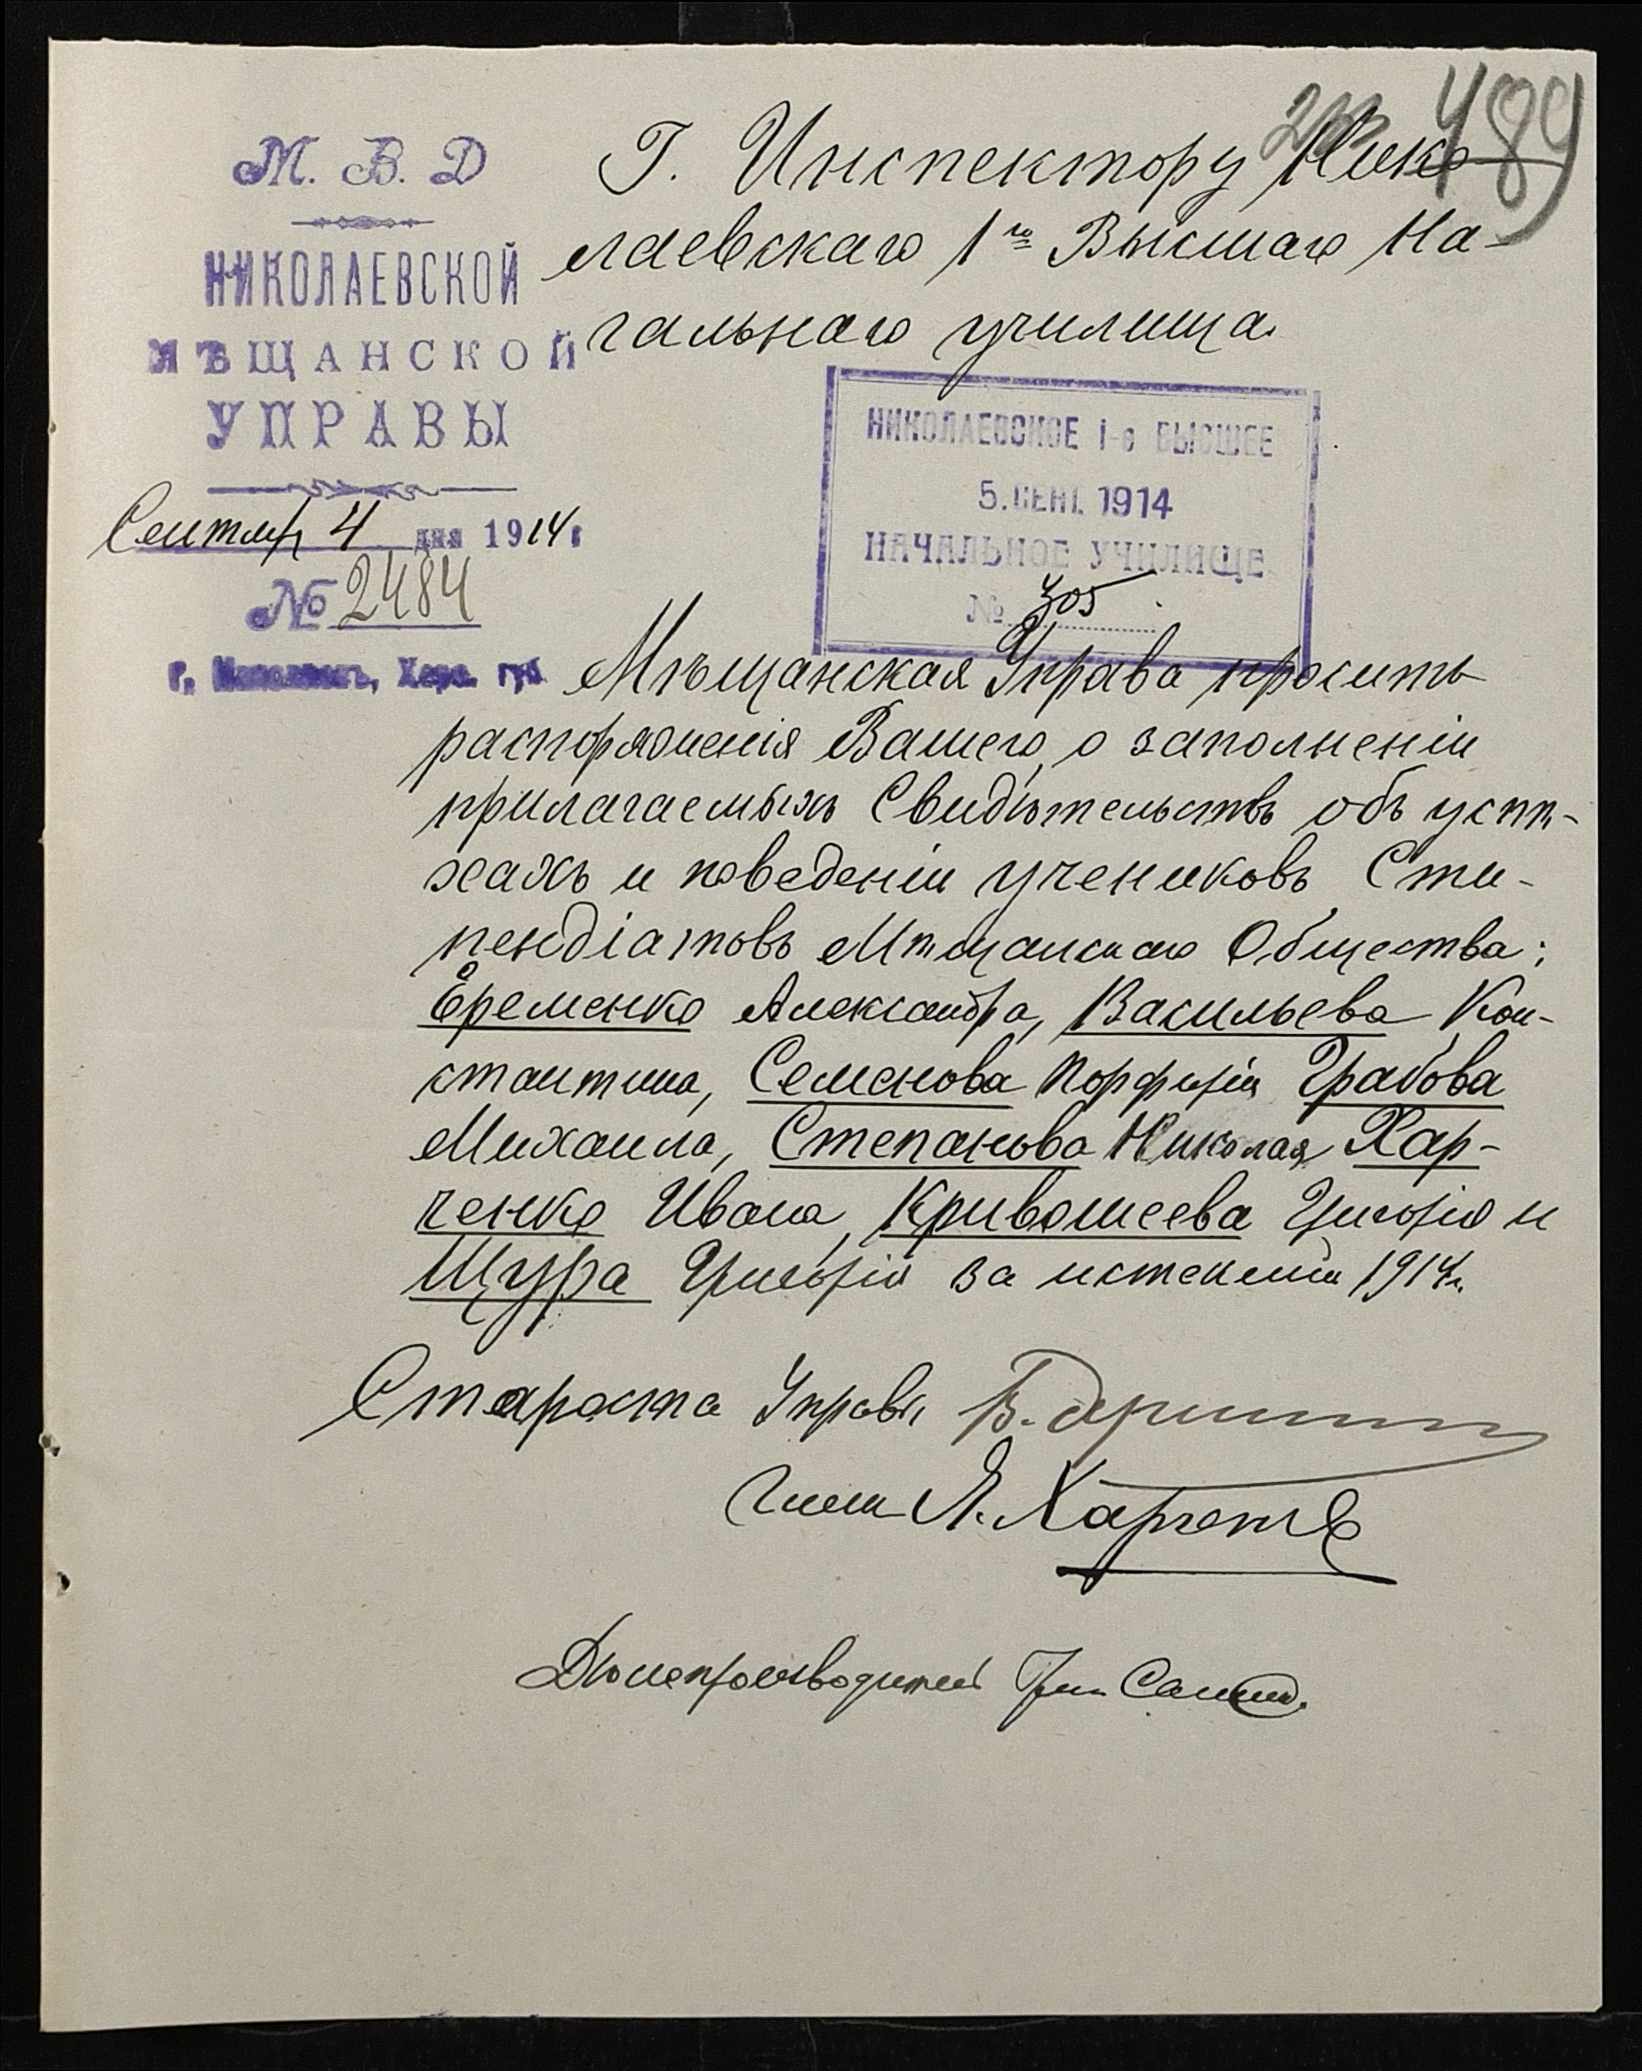 489
М. В. Д
НИКОЛАЕВСКОЙ
МѢЩАНСКОЙ
УПРАВЫ
Сентябр 4 дня 1914 г
№ 2484
г. Николаевъ, Херс. губ
Г. Инспектору Нико-
лаевскаго 1го Высшаго На-
чальнаго училища.
НИКОЛАЕВСКОЕ 1-е ВЫСШЕЕ
5. СЕНТ. 1914
НАЧАЛЬНОЕ УЧИЛИЩЕ
№ 305
Мѣщанская Управа просить
распоряженія Вашего, о заполненіи
прилагаемыхъ Свидѣтельствъ объ успѣ-
хахъ и поведеніи учениковъ Сти-
пендіатовъ Мѣщанскаго Общества:
Еременко Александра, Васильева Кон-
стантина, Семенова Порфирія Грабова
Михаила, Степанова Николая Хар-
ченко Ивана, Кривошеева Григорія и
Щура Григорія за истекшій 1914 г.
Староста Управы В.
Члены Я. Харченко
Дѣлопроизводитель